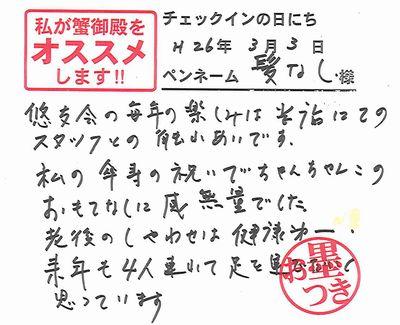 私が蟹御殿を
オススメ
します!!
チェックインの日にち
H26年 3月 3日
ペンネーム 髪なし 様
悠友会の毎年の楽しみは当詣にての
スタッフとの触れあいです.
私の傘寿の祝いでちゃんちゃんこの
おもてなしに感無量でした
老後のしあわせは健康第一.
来年も4人連れて足を運びたいと
思っています
お墨つき